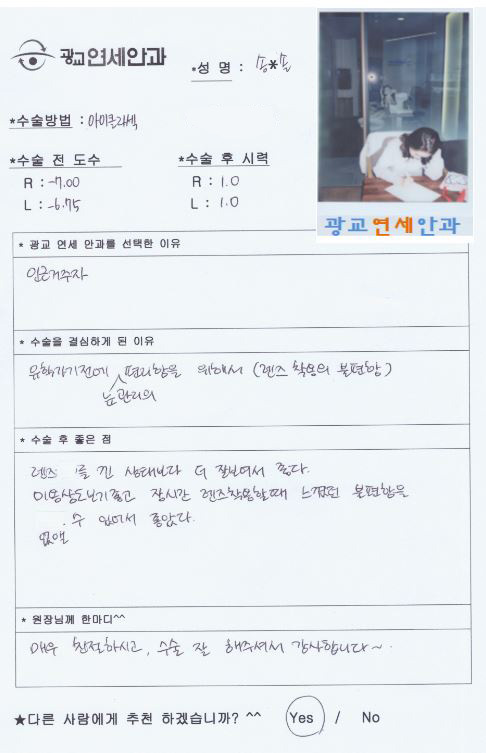 광교연세안과
*성 명 : 송*솔
*수술방법 : 아이클라섹
*수술 전 도수
*수술 후 시력
R : -7.00
R : 1.0
L : -6.75
L : 1.0
광교연세안과
* 광교 연세 안과를 선택한 이유
인근거주자
* 수술을 결심하게 된 이유
유학가기전에 눈관리의 편리함을 위해서 (렌즈 착용의 불편함)
* 수술 후 좋은 점
렌즈를 낀 상태보다 더 잘보여서 좋다.
미용상으로보기좋고 장시간 렌즈착용할때 느꼈던 불편함을
없앨 수 있어서 좋았다.
* 원장님께 한마디^^
매우 친절하시고, 수술 잘 해주셔서 감사합니다~
★다른 사람에게 추천 하겠습니까? ^^ Yes / No